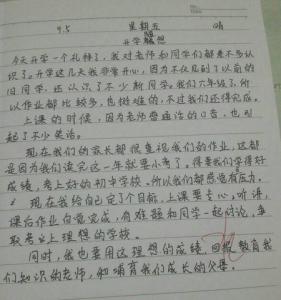 9.5 星期五 晴
开学随想
今天开学一个礼拜了，我对老师和同学们都差不多认
识了。开学这几天我非常开心，因为不仅见到了以前的
旧同学，还认识了不少新同学。我们六年级了，所
以作业都比较多，也挺难的，不过我们还得完成。
上课的时候，因为老师普通话的口音，也引
起了不少笑语。
现在我们的家长都很重视我们的作业，这都
是因为我们读完这一年就要小考了。得要我们学得好
成绩，考上好的初中学校。所以我们都感觉有压力。
现在我给自己定了个目标，上课要专心，听讲，
课后作业自觉完成，有难题和同学一起讨论，争
取考上理想的学校。
同时，我也要用这理想的成绩，回报教育我
们知识的老师，和哺育我们成长的父母。